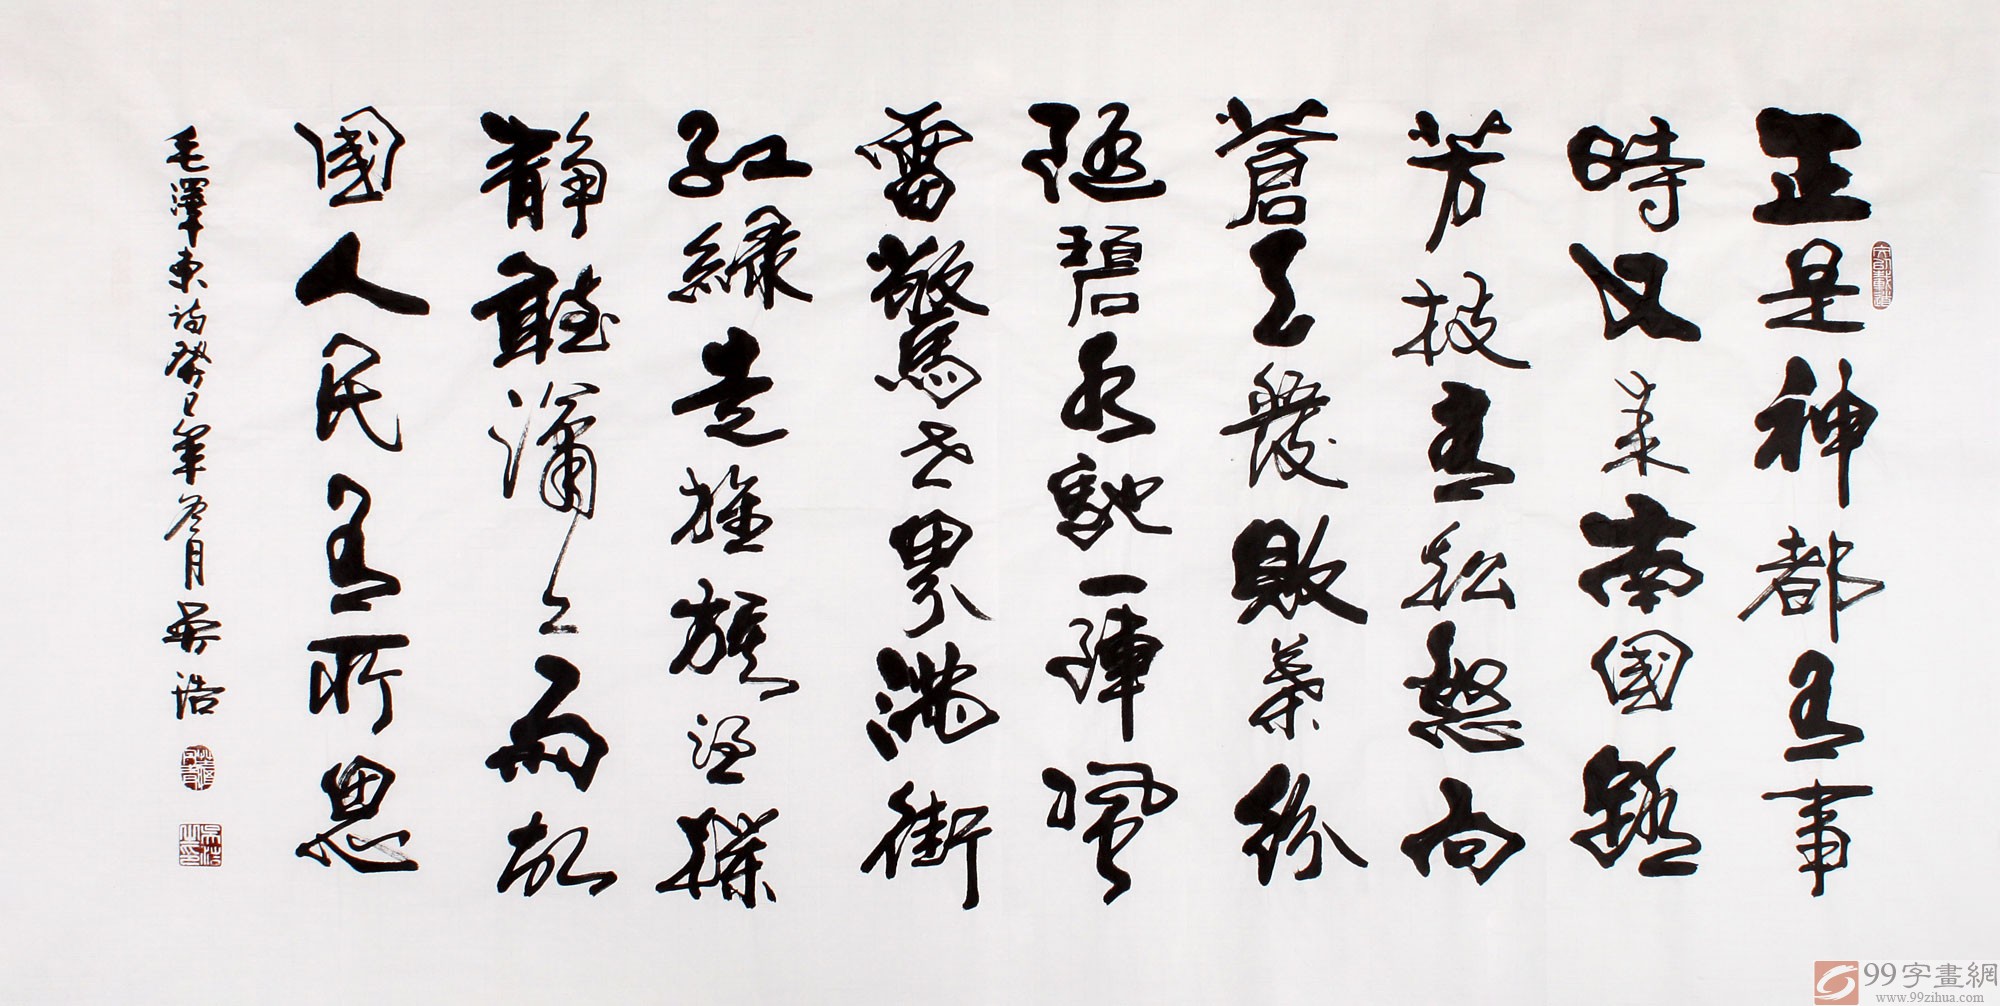 正是神都有事
時又来南國踏
芳枝青松怒向
蒼天發敗葉紛
隨碧水馳一陣風
雷驚世界滿街
紅綠走旌旗凭欄
靜聽瀟瀟雨故
國人民有所思
毛澤東詩癸巳年冬月吳浩
吳浩之印
99字畫網
www.99zihua.com